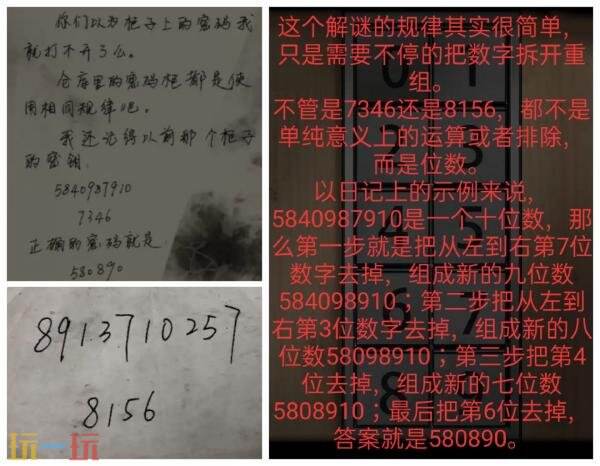 你们以为柜子上的密码我
就打不开了么。
仓库里的密码柜都是使
用相同规律吧。
我还记得以前那个柜子
的密钥
5840987910
7346
正确的密码就是
580890
8913710257
8156
玩一玩
这个解谜的规律其实很简单，
只是需要不停的把数字拆开重
组。
不管是7346还是8156，都不是
单纯意义上的运算或者排除，
而是位数。
以日记上的示例来说，
5840987910是一个十位数，那
么第一步就是把从左到右第7位
数字去掉，组成新的九位数
584098910；第二步把从左到
右第3位数字去掉，组成新的八
位数58098910；第三步把第4
位去掉，组成新的七位数
5808910；最后把第6位去掉，
答案就是580890。
0
1
2
3
5
6
7
8